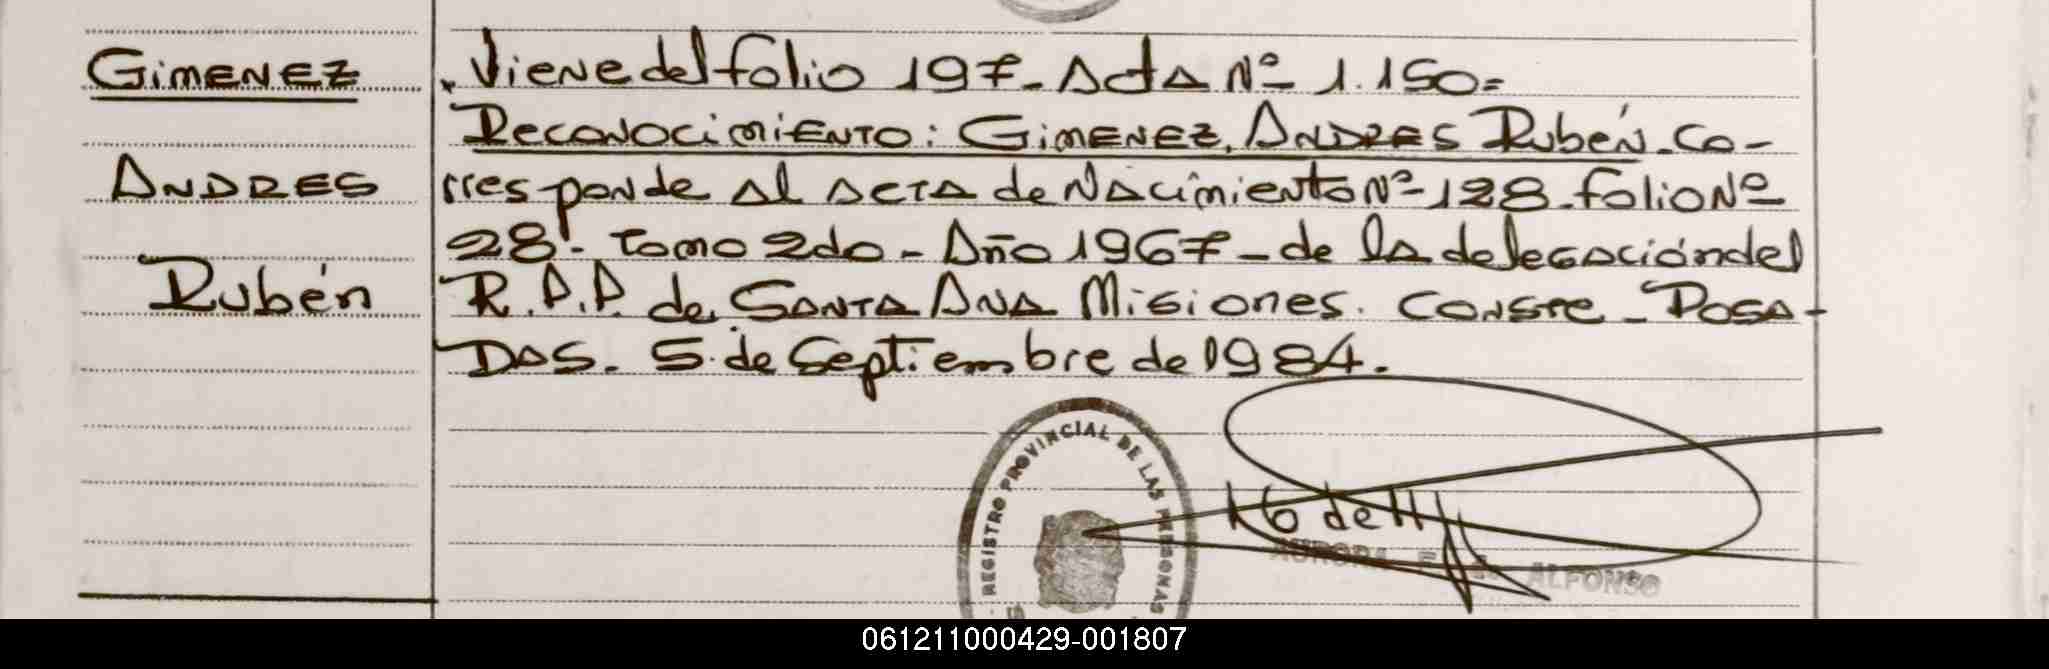 GIMENEZ
ANDRES
Rubén
. Viene del folio 197- Acta Nº 1.150=
Reconocimiento: GIMENEZ, ANDRES Rubén- Co-
rresponde al acta de Nacimiento Nº 128- folio Nº
28- Tomo 2do- Año 1967- de la delegación del
R.P.P. de Santa Ana Misiones. Conste- Posa-
das. 5 de Septiembre de 1984.
REGISTRO PROVINCIAL DE LAS PERSONAS
AURORA ALFONSO
061211000429-001807